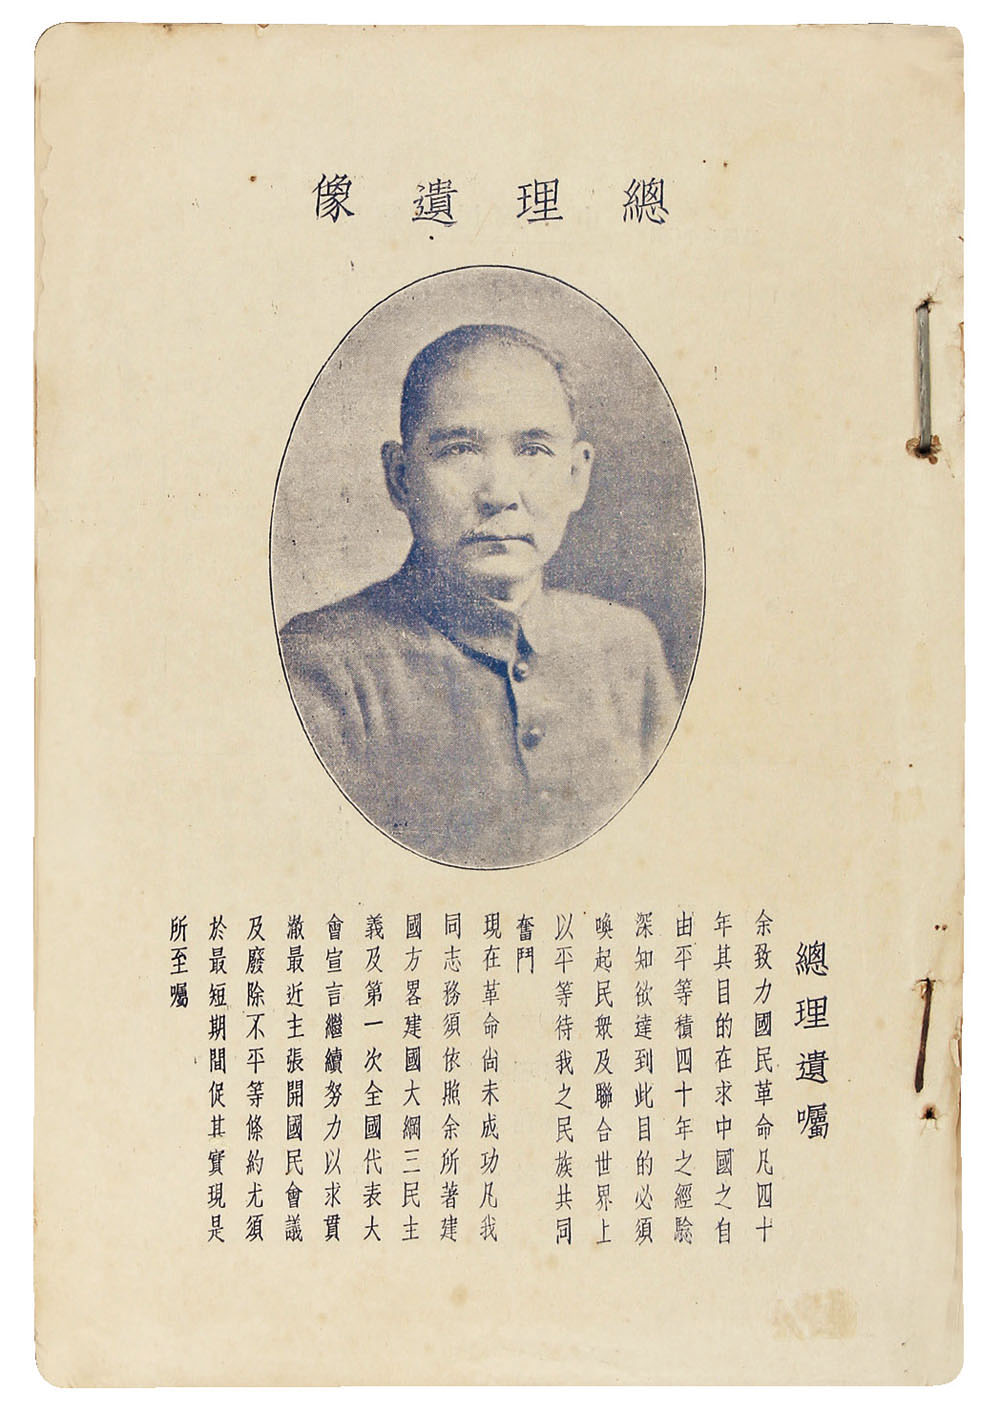 總理遺像
總理遺囑
余致力國民革命凡四十
年其目的在求中國之自
由平等積四十年之經驗
深知欲達到此目的必須
喚起民衆及聯合世界上
以平等待我之民族共同
奮鬥
現在革命尚未成功凡我
同志務須依照余所著建
國方畧建國大綱三民主
義及第一次全國代表大
會宣言繼續努力以求貫
澈最近主張開國民會議
及廢除不平等條約尤須
於最短期間促其實現是
所至囑